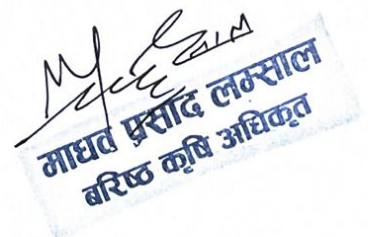 माधव प्रसाद लम्साल
बरिष्ठ कृषि अधिकृत